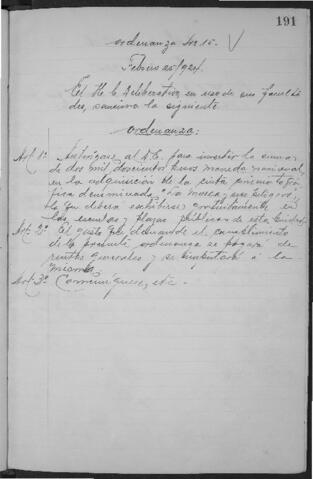 191
Ordenanza Nro 15.
Febrero 25/924.
El H. C. Deliberativo, en uso de sus faculta
des, sanciona la siguiente
Ordenanza:
Art. 1º Autorízase al D.E. para invertir la suma
de dos mil doscientos pesos moneda nacional
en la adquisición de la cinta cinematográ
fica denominada "La Mosca",
que deberá exhibirse gratuitamente en
las escuelas y plazas públicas de esta Ciudad.
Art. 2º El gasto que demande el cumplimiento
de la presente ordenanza se pagará de
rentas generales y se imputará á la
misma.
Art. 3º Comuníquese, etc.